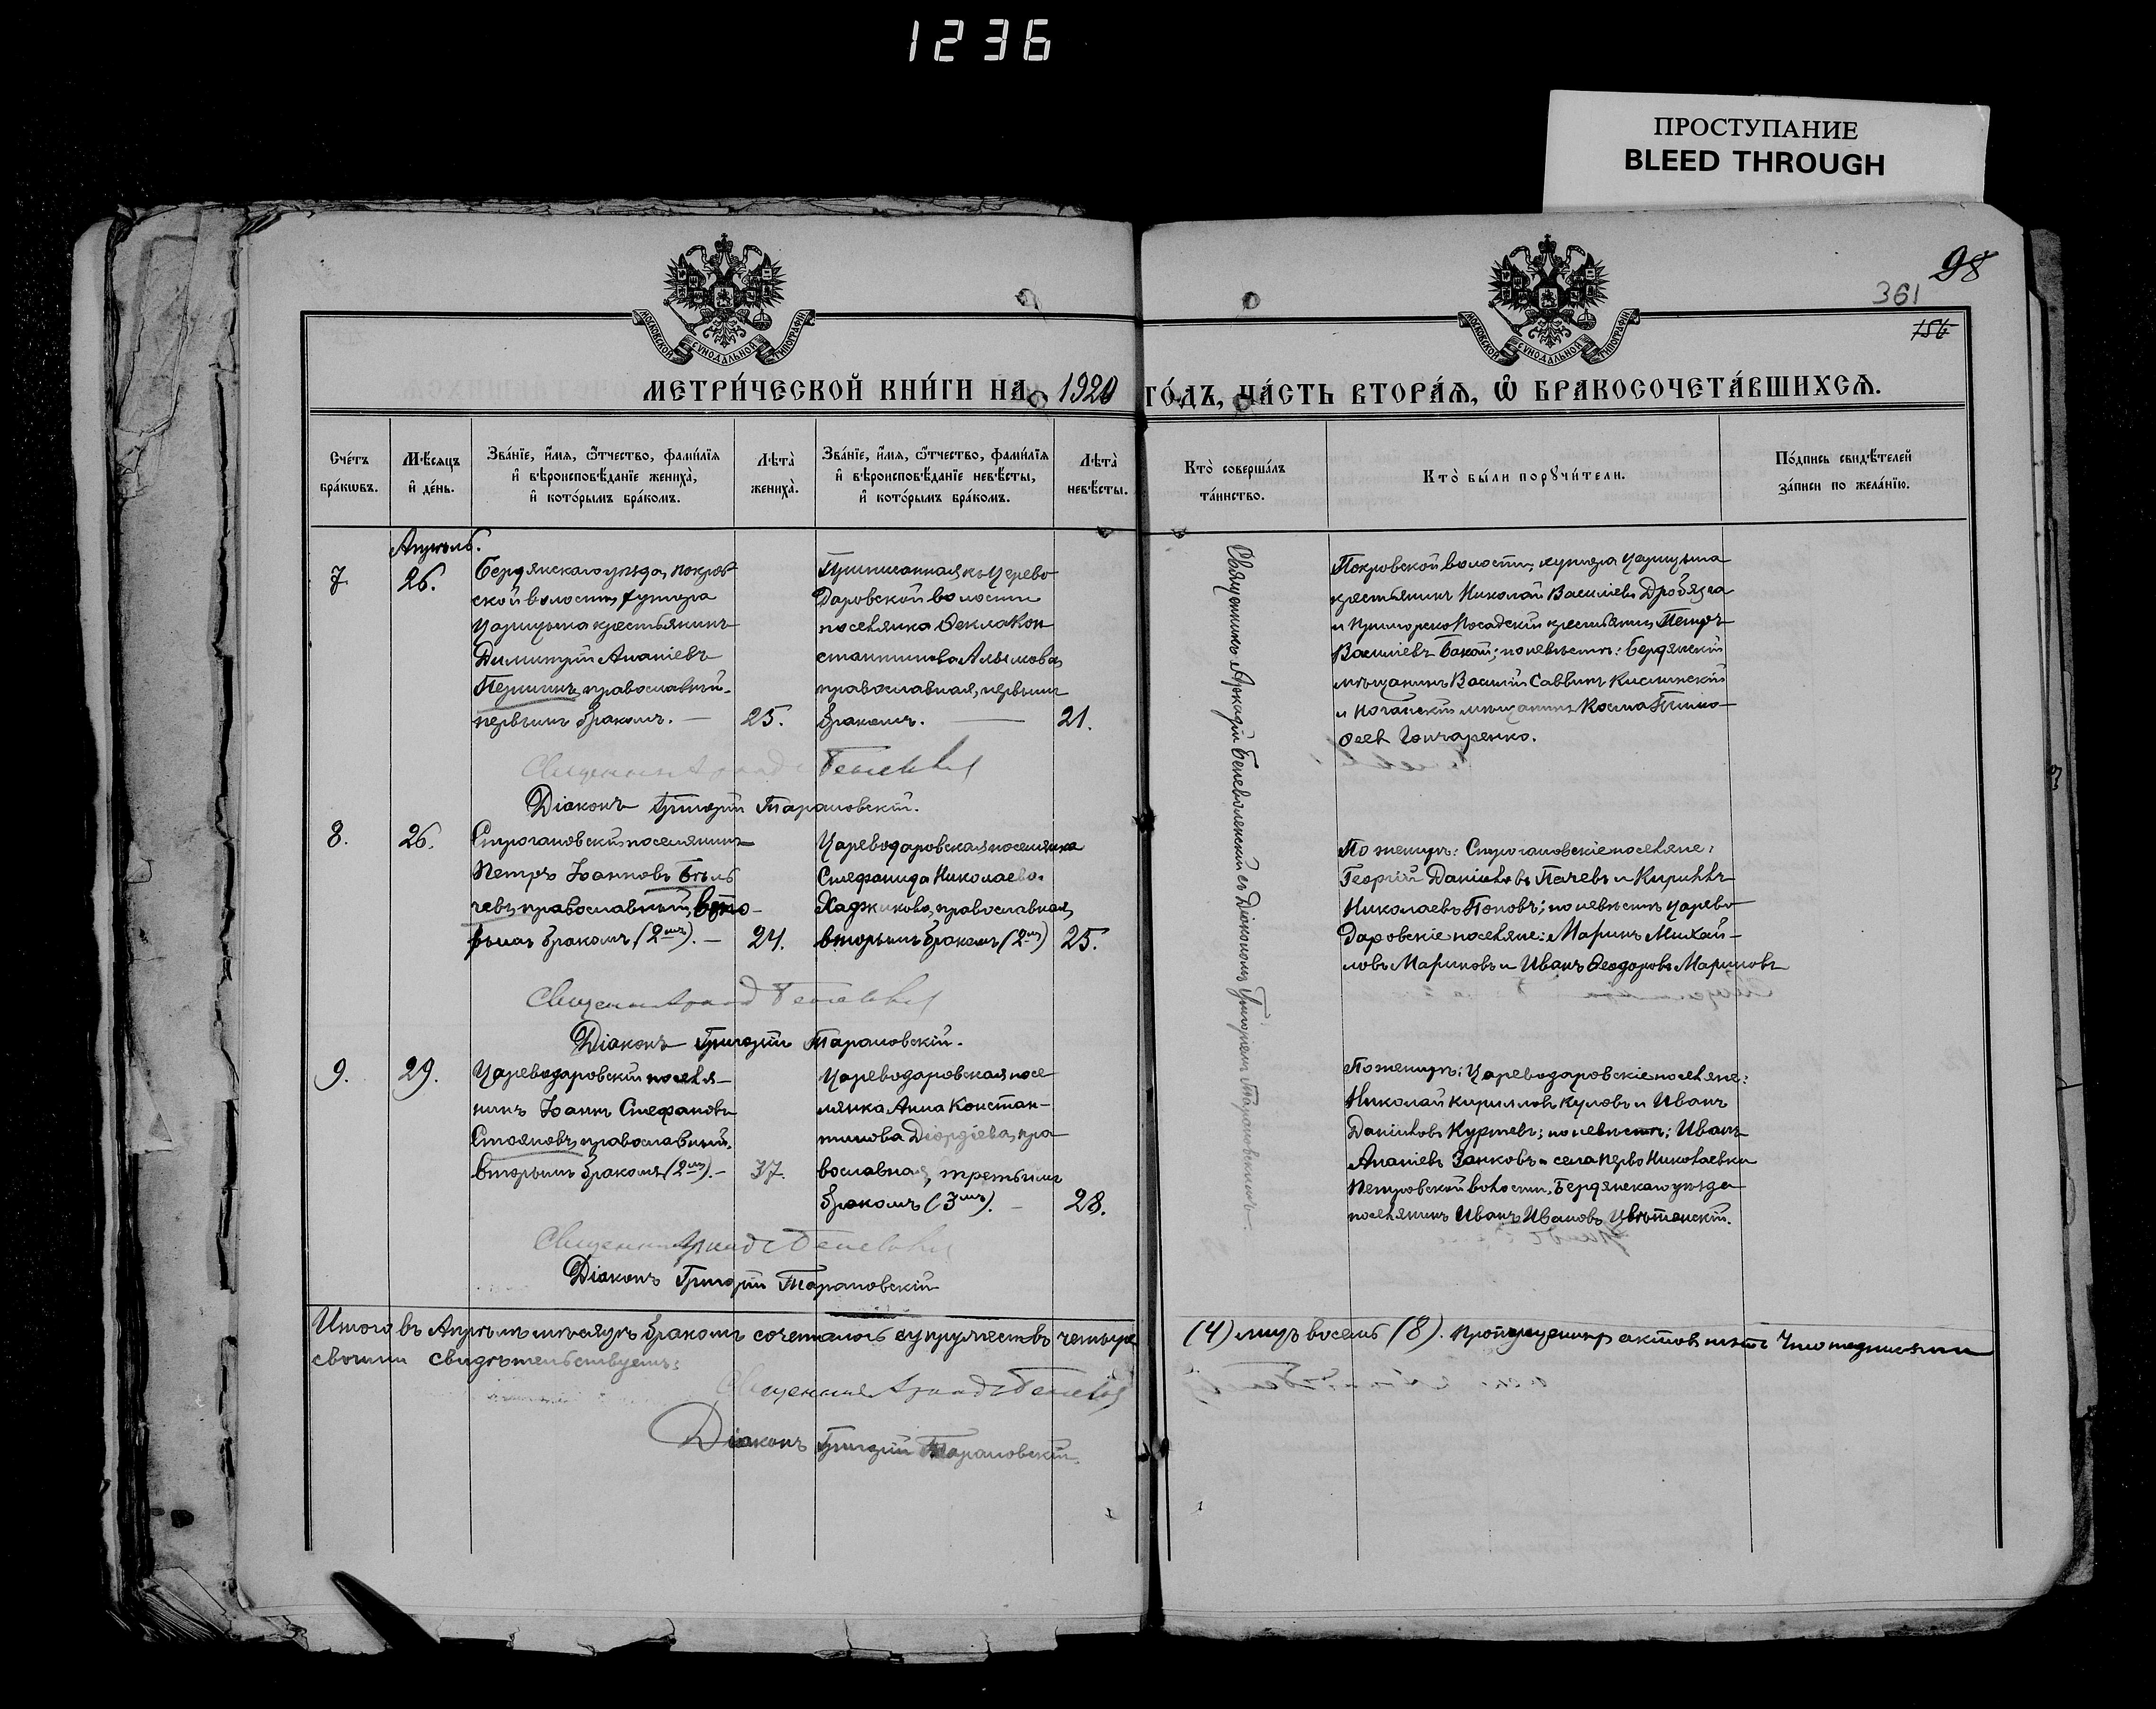 1236
ПРОСТУПАНИЕ
BLEED THROUGH
98
361
156
МОСКОВСКОЙ СѴНОДАЛЬНОЙ ТИПОГРАФІИ
МОСКОВСКОЙ СѴНОДАЛЬНОЙ ТИПОГРАФІИ
МЕТРИ́ЧЕСКОЙ КНИ́ГИ НА 1920 ГО́ДЪ, ЧА́СТЬ ВТОРА́Ѧ, Ѿ БРАКОСОЧЕТА́ВШИХСѦ.
Сче́тъ
бра́кѡвъ.
Мѣсяцъ
и҆ де́нь.
Зва́нїе, и҆́мя, ѻ҆́тчество, фами́лїя
и҆ вѣроисповѣ́данїе жениха̀,
и҆ кото́рымъ бра́комъ.
Лѣта̀
жениха̀.
Зва́нїе, и҆́мя, ѻ҆́тчество, фами́лїя
и҆ вѣроисповѣ́данїе невѣ́сты,
и҆ кото́рымъ бра́комъ.
Лѣта̀
невѣ́сты.
Кто̀ соверша́лъ
та́инство.
Кто̀ бы́ли порꙋчи́тели.
По́дпись свидѣ́телей
за́писи по жела́нїю.
Апрѣль.
7.
26.
Бердянскаго уѣзда, Покров
ской волости, хутора
Царицына крестьянинъ
Димитрій Ананіевъ
православный,
первымъ бракомъ. —
25.
Приписанная къ Царево
Даровской волости
поселянка Ѳекла Кон
стантинова
православная, первымъ
бракомъ. —
21.
Священникъ Аркадій Беневоленскій съ Діакономъ Григоріемъ Тарановскимъ.
Покровской волости, хутора Царицына
крестьянинъ Николай Васильевъ Дробязга
и Приморско Посадскій крестьянинъ Петръ
Васильевъ Бакай; по невѣстѣ: Бердянскій
мѣщанинъ Василій Саввинъ Кислинскій
и Ногайскій мѣщанинъ Косма Тимо-
ѳеевъ Гончаренко.
Діаконъ Григорій Тарановскій.
8.
26.
Строгановскій поселянинъ
Петръ Іоанновъ Бѣль
чевъ, православный, вто-
рымъ бракомъ (2мъ). —
24.
Цареводаровская поселянка
Стефанида Николаева
Хаджикова, православная,
вторымъ бракомъ (2мъ)
25.
По женихѣ: Строгановскіе поселяне:
Георгій Даніиловъ Пачевъ и Кириллъ
Николаевъ Поповъ; по невѣстѣ Царево
даровскіе поселяне: Маринъ Михай-
ловъ Мариновъ и Иванъ Ѳеодоровъ Мариновъ
Діаконъ Григорій Тарановскій.
9.
29.
Цареводаровскій поселя-
нинъ Іоаннъ Стефановъ
Стояновъ, православный,
вторымъ бракомъ (2мъ). —
37.
Цареводаровская посе
лянка Анна Констан-
тинова Діордіева, пра
вославная, третьимъ
бракомъ (3мъ). —
28.
По женихѣ: Цареводаровскіе поселяне:
Николай Кирилловъ Куловъ и Иванъ
Даніиловъ Куртевъ; по невѣстѣ: Иванъ
Ананіевъ Занковъ и села Перво Николаевки
Петровской волости, Бердянскаго уѣзда
поселянинъ Иванъ Ивановъ Цвѣтанскій.
Діаконъ Григорій Тарановскій
Итого въ Апрѣлѣ мѣсяцѣ бракомъ сочеталось супружествъ четыре (4) лицъ восемь (8). Пропущенныхъ актовъ нѣтъ Что подписями
своими свидѣтельствуемъ:
Діаконъ Григорій Тарановскій.